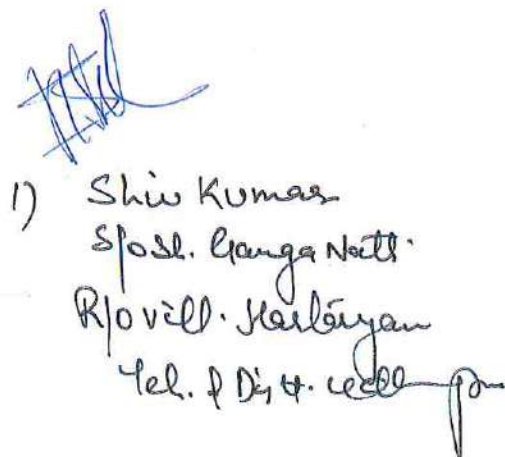 1) Shiv Kumar
S/o Sh. Ganga Nath.
R/o Vill.
Teh. & Distt.